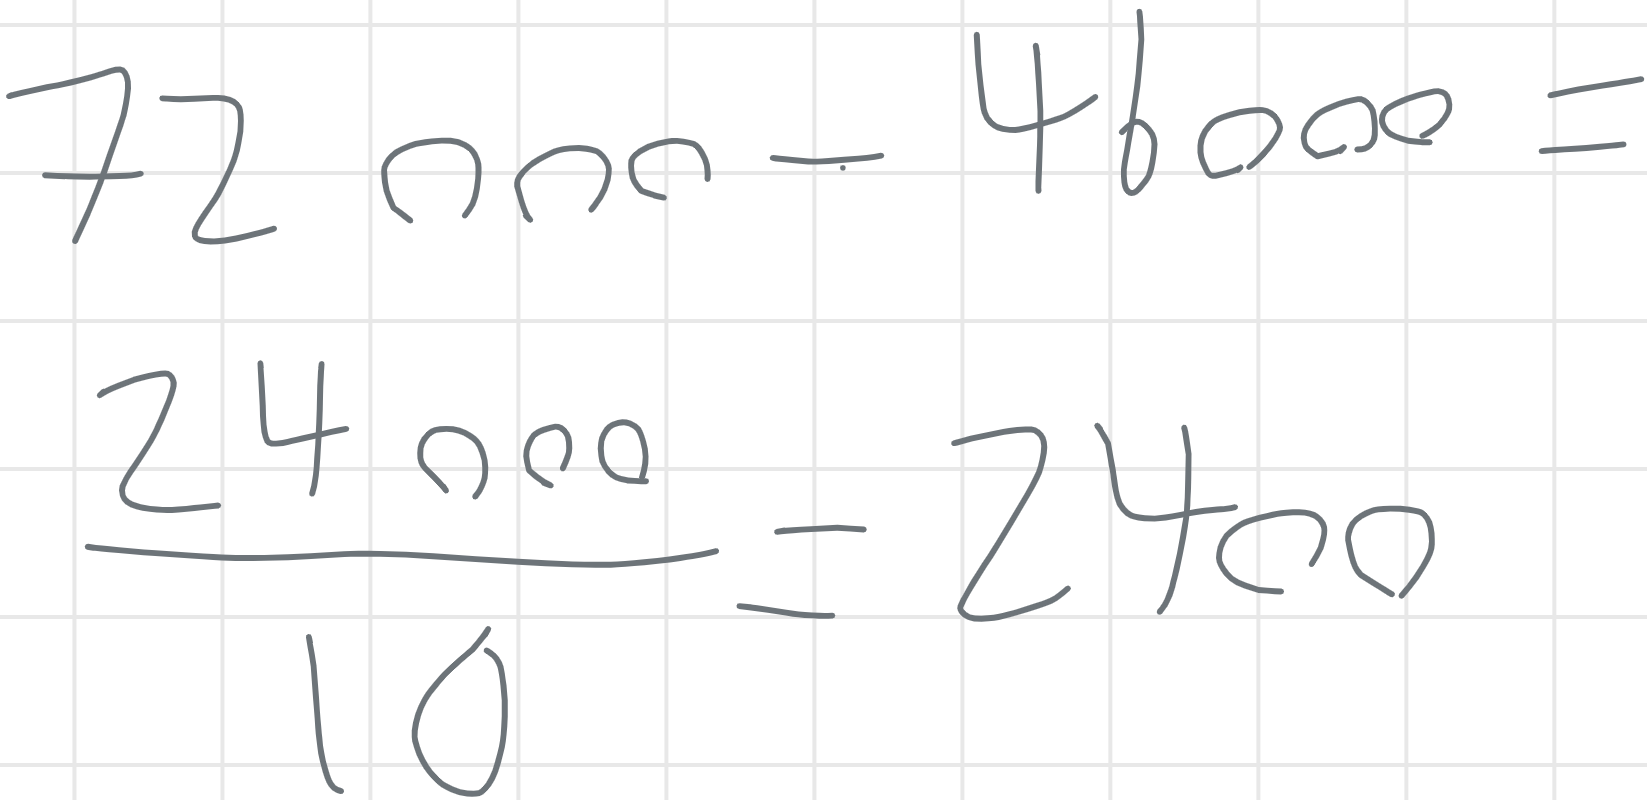 72 000 - 48000 =
24 000
10
= 2400